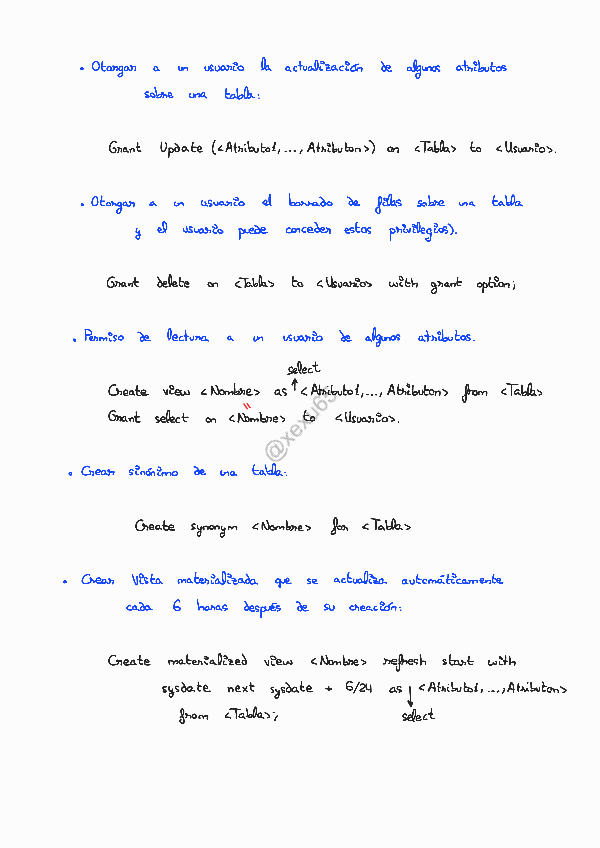 • Otorgar a un usuario la actualización de algunos atributos
sobre una tabla:
Grant Update (<Atributo1,..., Atributon>) on <Tabla> to <Usuario>.
• Otorgar a un usuario el borrado de filas sobre una tabla
y el usuario puede conceder estos privilegios).
Grant delete on <Tabla> to <Usuario> with grant option;
• Permiso de lectura a un usuario de algunos atributos.
select
Create view <Nombre> as ↑ <Atributo1,..., Atributon> from <Tabla>
Grant select on <Nombre> to <Usuario>.
@xexu65
• Crear sinónimo de una tabla:
Create synonym <Nombre> for <Tabla>
• Crear Vista materializada que se actualiza automáticamente
cada 6 horas después de su creación:
Create materialized view <Nombre> refresh start with
sysdate next sysdate + 6/24 as ↓ <Atributo1,...,Atributon>
from <Tabla>; select